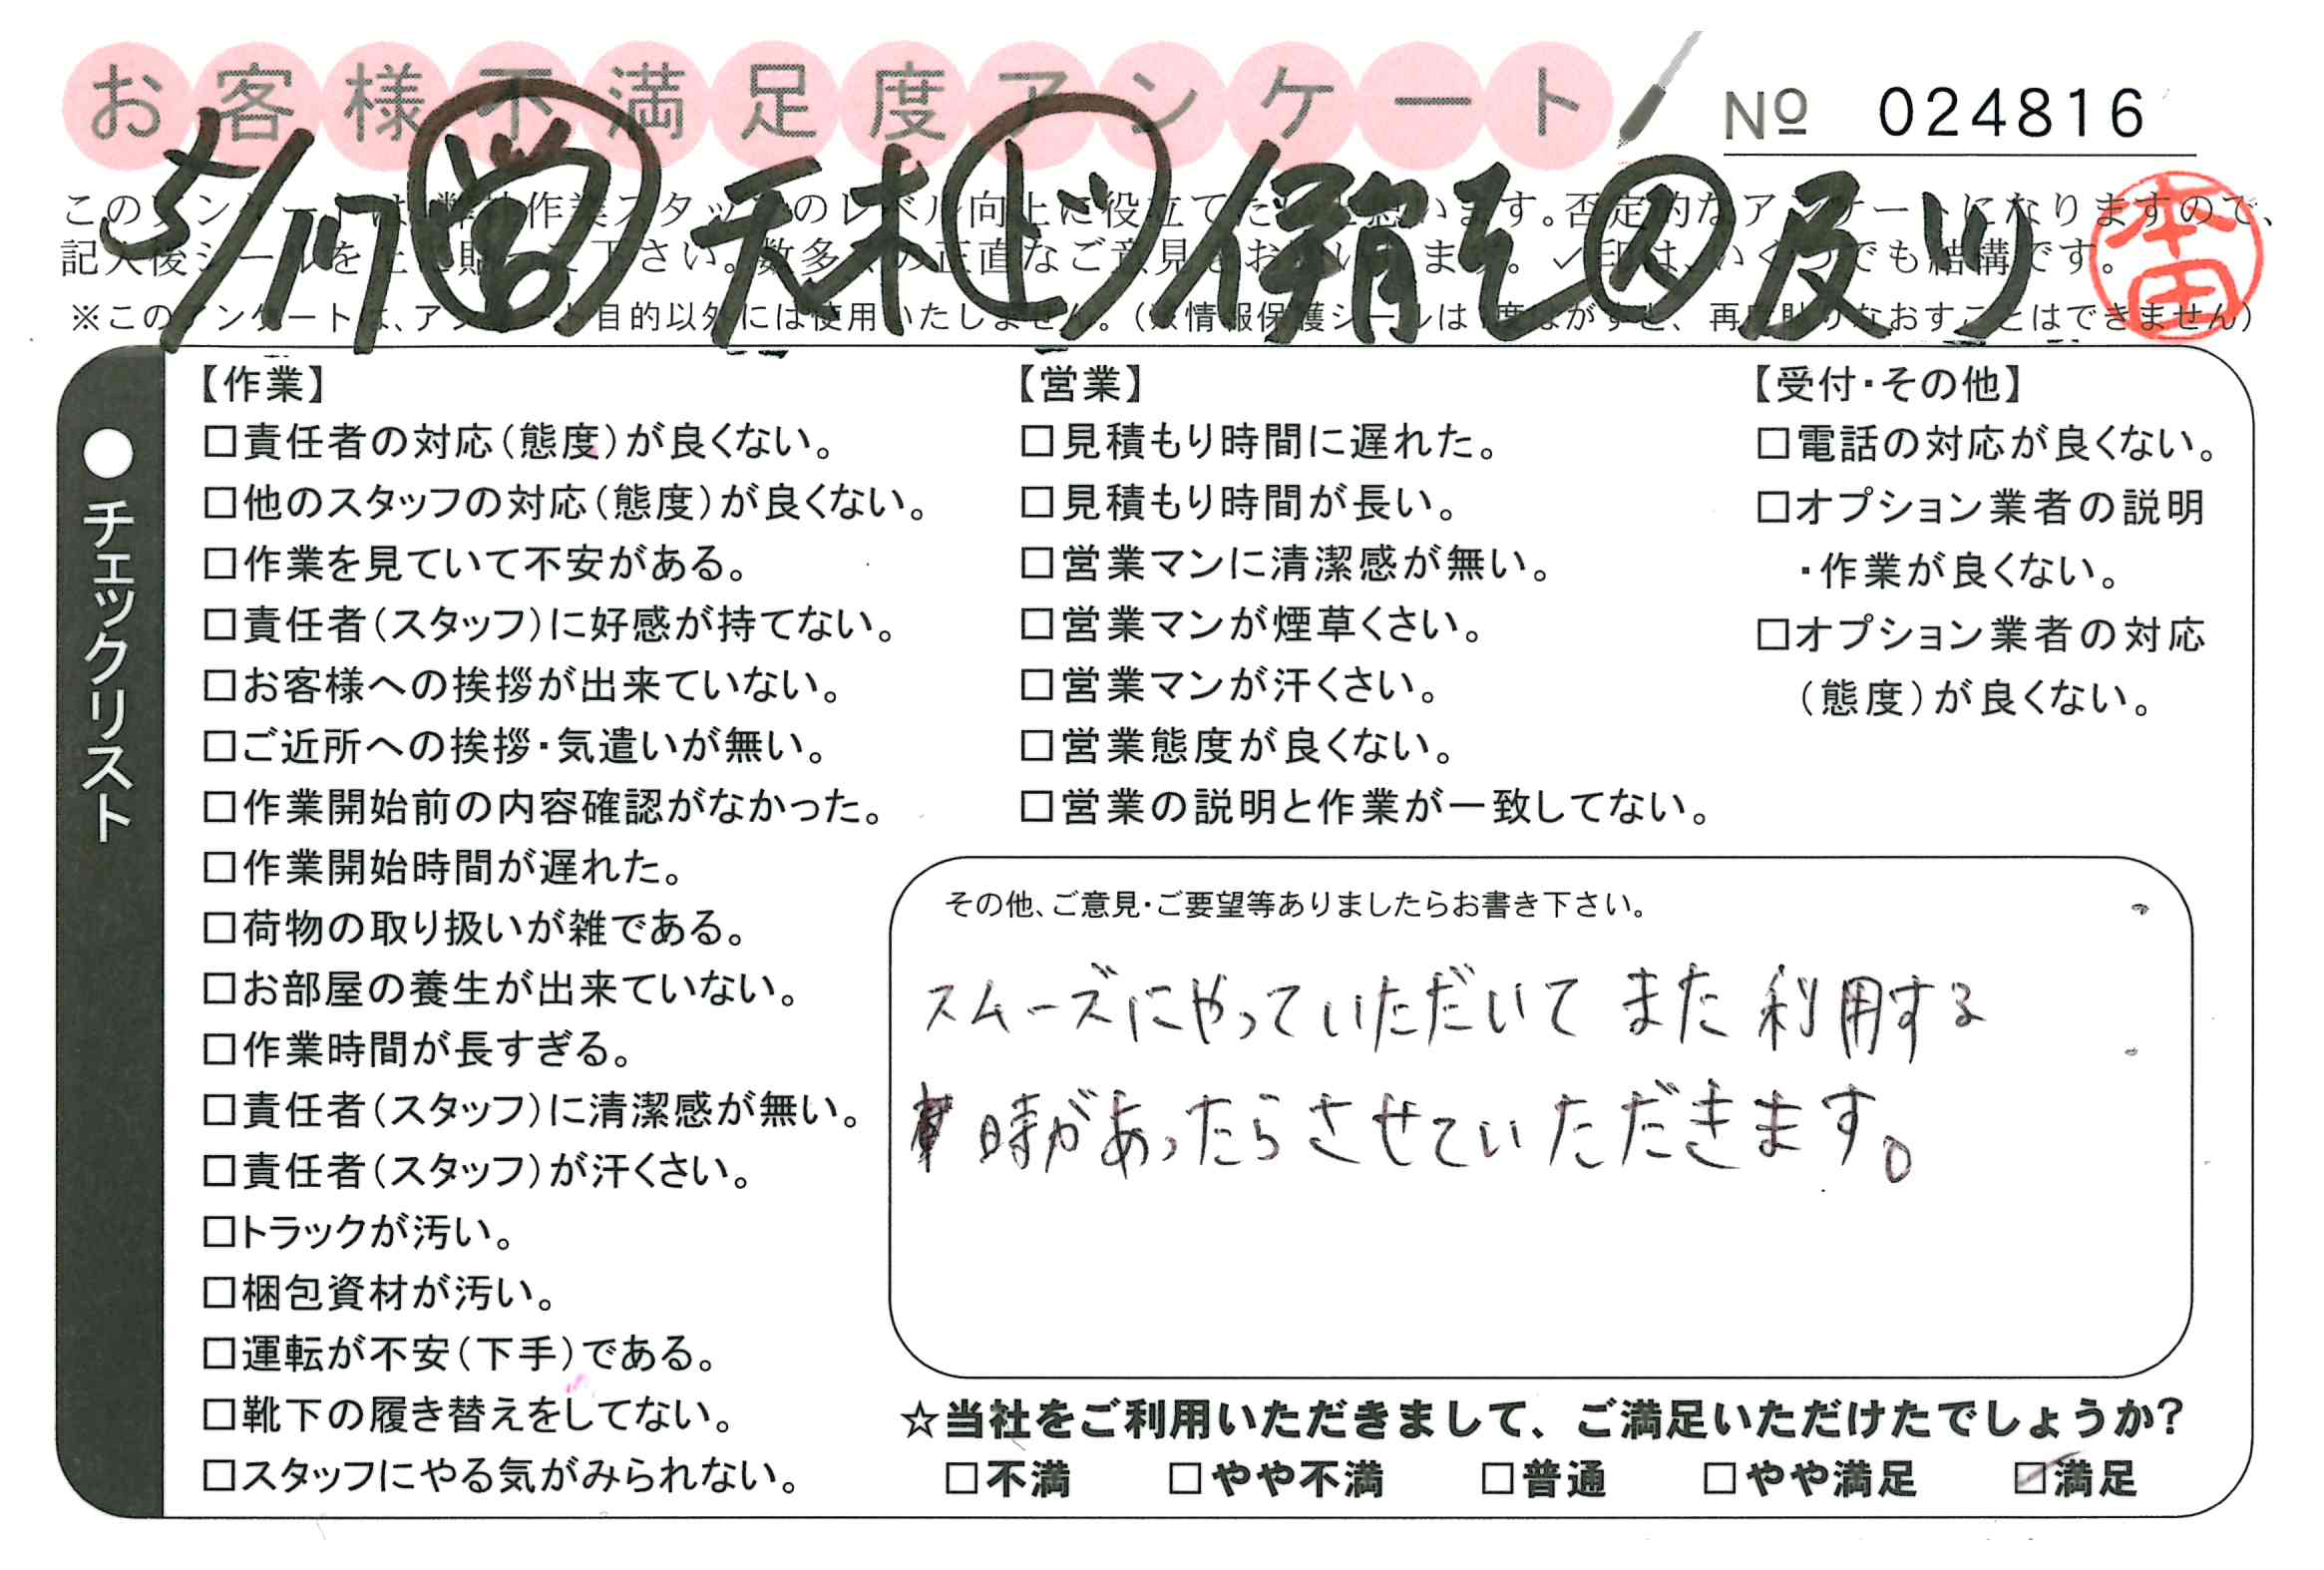 お客様不満足度アンケート
№ 024816
5/17 営
本田
※このアンケートは、アンケート目的以外には使用いたしません。(※情報保護シールは1度はがすと、再度貼りなおすことはできません)
●チェックリスト
【作業】
□責任者の対応(態度)が良くない。
□他のスタッフの対応(態度)が良くない。
□作業を見ていて不安がある。
□責任者(スタッフ)に好感が持てない。
□お客様への挨拶が出来ていない。
□ご近所への挨拶・気遣いが無い。
□作業開始前の内容確認がなかった。
□作業開始時間が遅れた。
□荷物の取り扱いが雑である。
□お部屋の養生が出来ていない。
□作業時間が長すぎる。
□責任者(スタッフ)に清潔感が無い。
□責任者(スタッフ)が汗くさい。
□トラックが汚い。
□梱包資材が汚い。
□運転が不安(下手)である。
□靴下の履き替えをしてない。
□スタッフにやる気がみられない。
【営業】
□見積もり時間に遅れた。
□見積もり時間が長い。
□営業マンに清潔感が無い。
□営業マンが煙草くさい。
□営業マンが汗くさい。
□営業態度が良くない。
□営業の説明と作業が一致してない。
【受付・その他】
□電話の対応が良くない。
□オプション業者の説明
・作業が良くない。
□オプション業者の対応
(態度)が良くない。
その他、ご意見・ご要望等ありましたらお書き下さい。
スムーズにやっていただいて また 利用する
時があったらさせていただきます。
☆当社をご利用いただきまして、ご満足いただけたでしょうか?
□不満 □やや不満 □普通 □やや満足 ☑満足